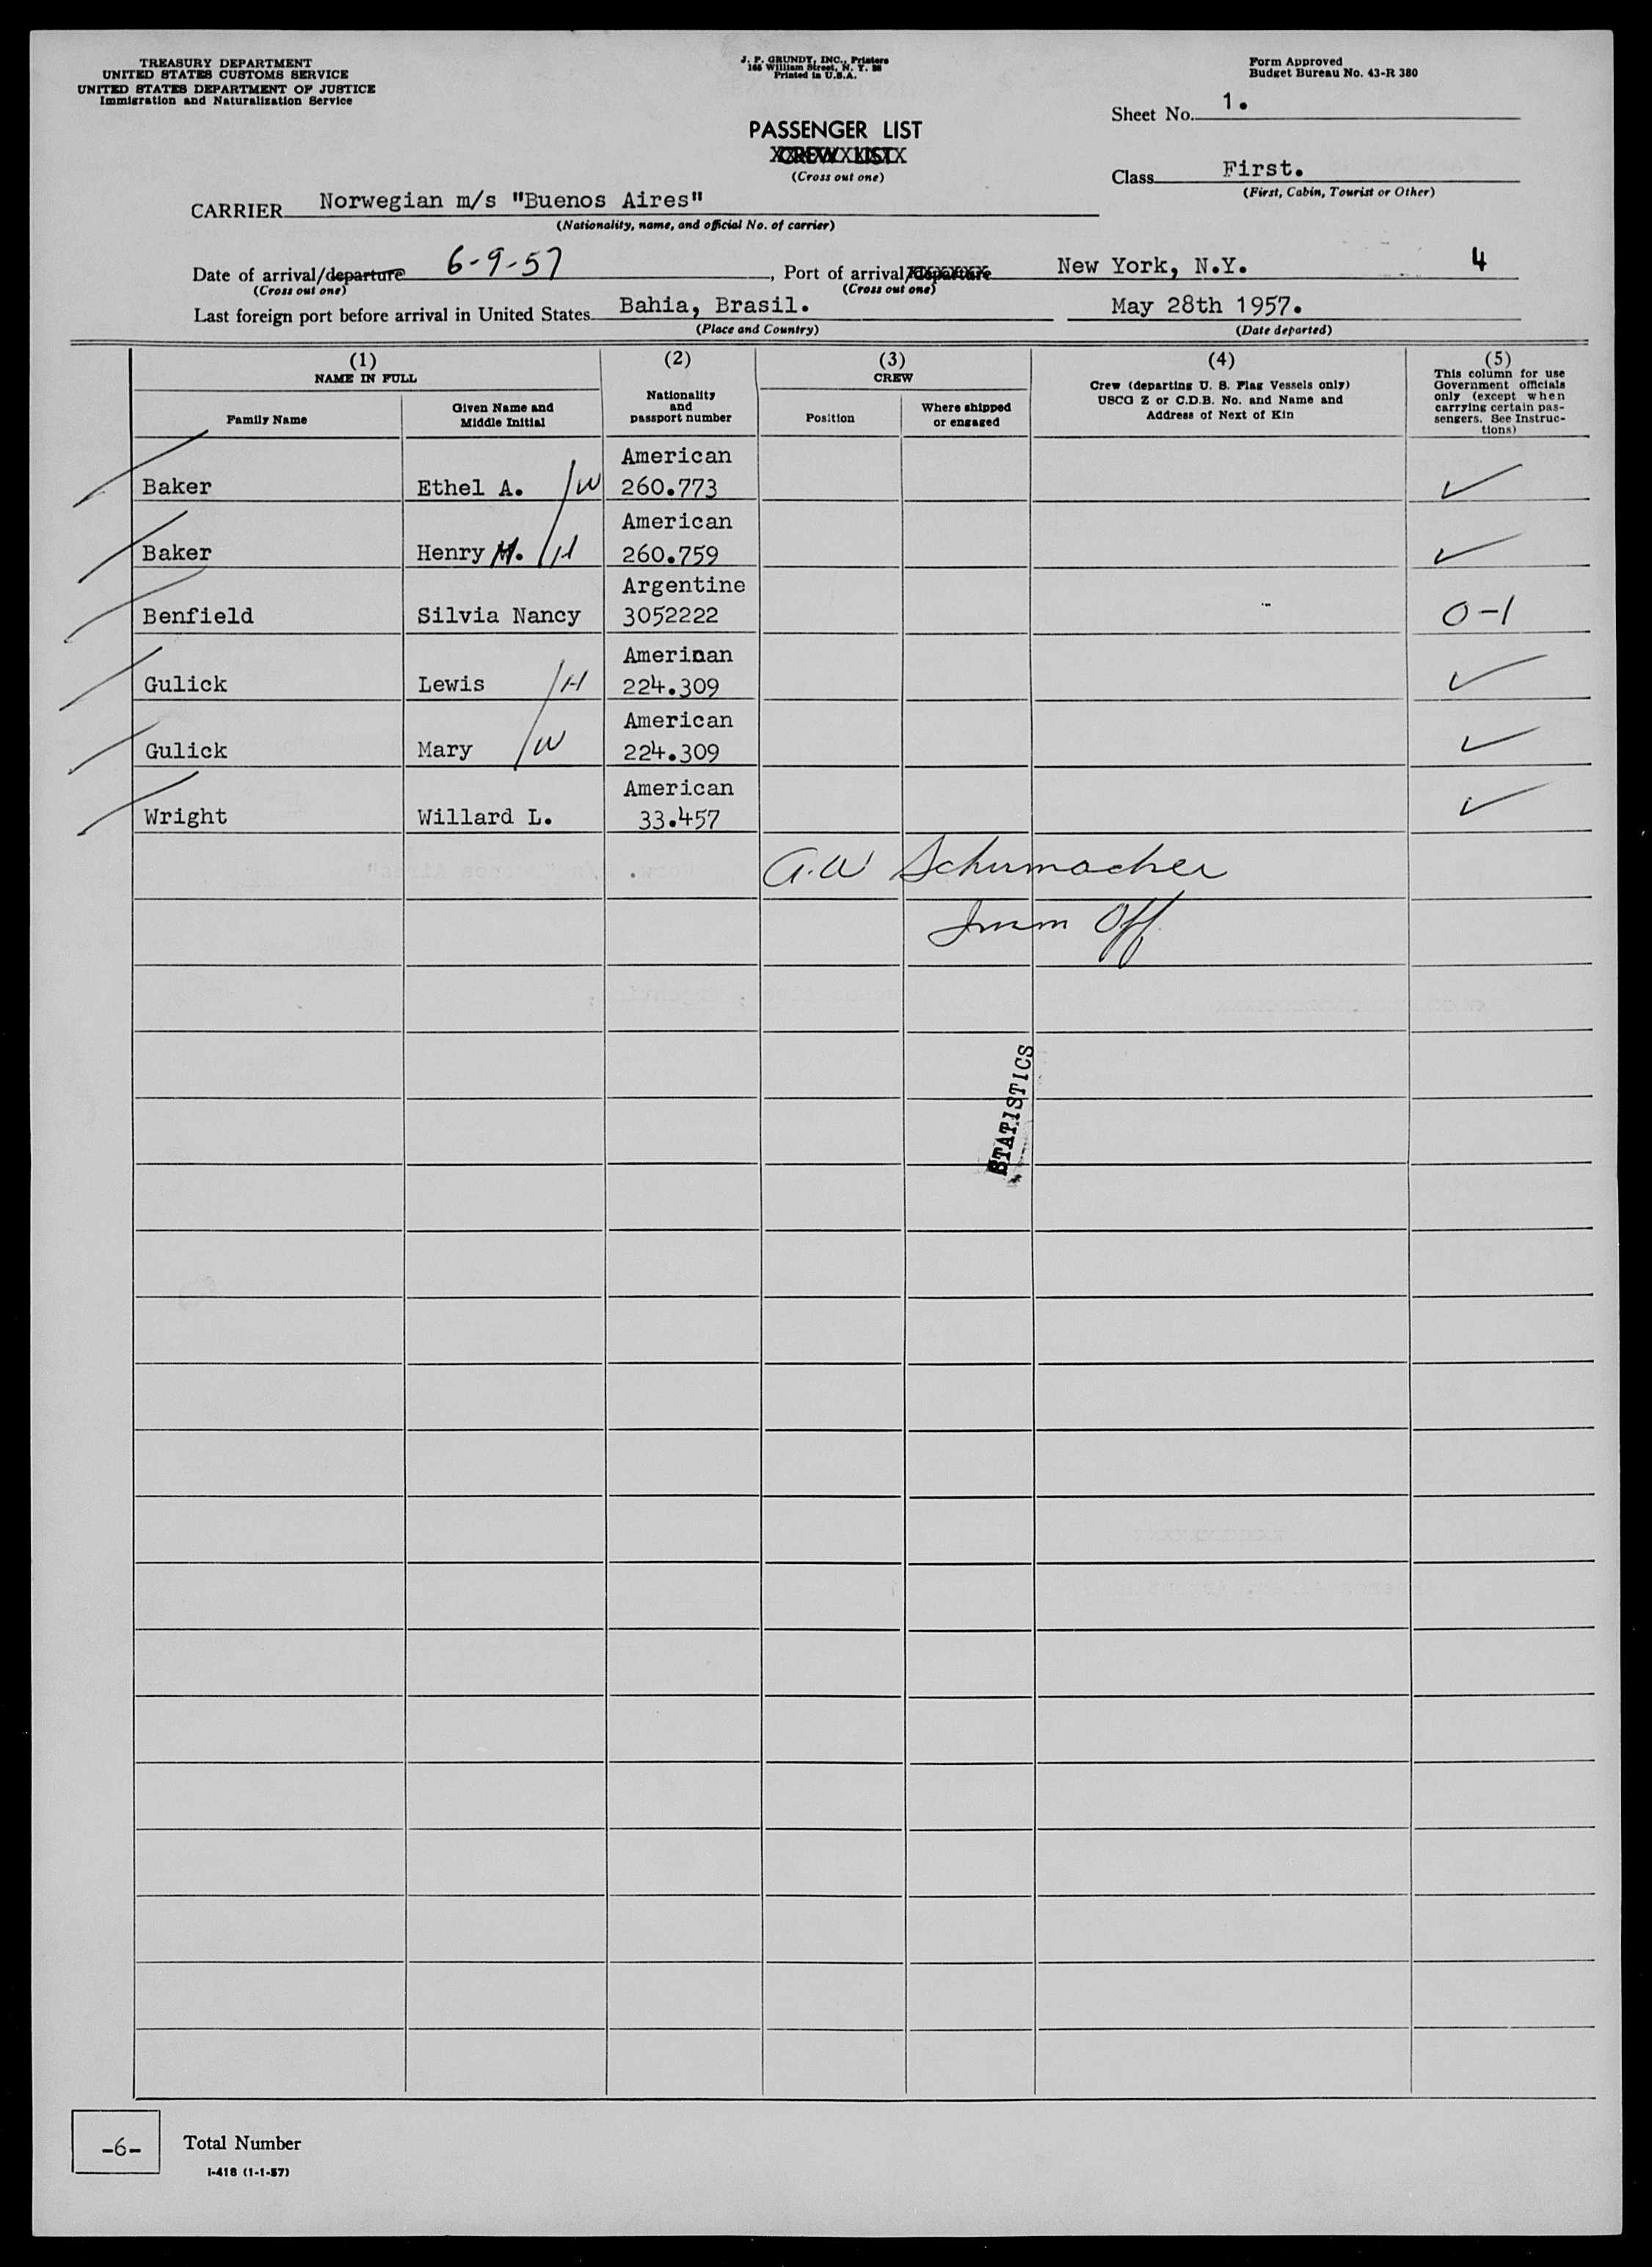 TREASURY DEPARTMENT
UNITED STATES CUSTOMS SERVICE
UNITED STATES DEPARTMENT OF JUSTICE
Immigration and Naturalization Service
J. F. GRUNDY, INC., Printers
165 William Street, N. Y. 38
Printed in U.S.A.
Form Approved
Budget Bureau No. 43-R 380
Sheet No. 1.
PASSENGER LIST
CREW LIST
(Cross out one)
Class First.
(First, Cabin, Tourist or Other)
CARRIER Norwegian m/s "Buenos Aires"
(Nationality, name, and official No. of carrier)
Date of arrival/departure 6-9-57, Port of arrival/departure New York, N.Y. 4
(Cross out one) (Cross out one)
Last foreign port before arrival in United States Bahia, Brasil. May 28th 1957.
(Place and Country) (Date departed)
(1) (2) (3) (4) (5)
NAME IN FULL
Family Name
Given Name and
Middle Initial
Nationality
and
passport number
CREW
Position
Where shipped
or engaged
Crew (departing U. S. Flag Vessels only)
USCG Z or C.D.B. No. and Name and
Address of Next of Kin
This column for use
Government officials
only (except when
carrying certain pas-
sengers. See Instruc-
tions)
American
Baker Ethel A. /W 260.773 ✓
American
Baker Henry H. /H 260.759 ✓
Argentine
Benfield Silvia Nancy 3052222 0-1
Amerinan
Gulick Lewis /H 224.309 ✓
American
Gulick Mary /W 224.309 ✓
American
Wright Willard L. 33.457 ✓
A.W Schumacher
Imm Off
STATISTICS
-6- Total Number
I-418 (1-1-57)